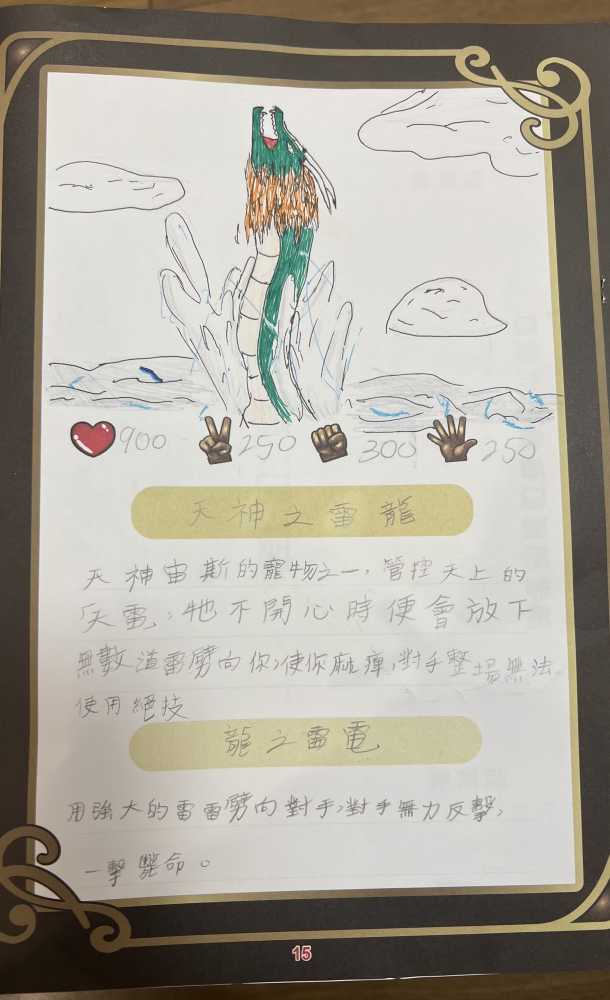 900 250 300 250
天神之雷龍
天神宙斯的寵物之一，管控天上的
「天電」，牠不開心時便會放下
無數道雷劈向你，使你麻痺，對手整場無法
使用絕技
龍之雷電
用強大的雷雷劈向對手，對手無力反擊，
一擊斃命。
15